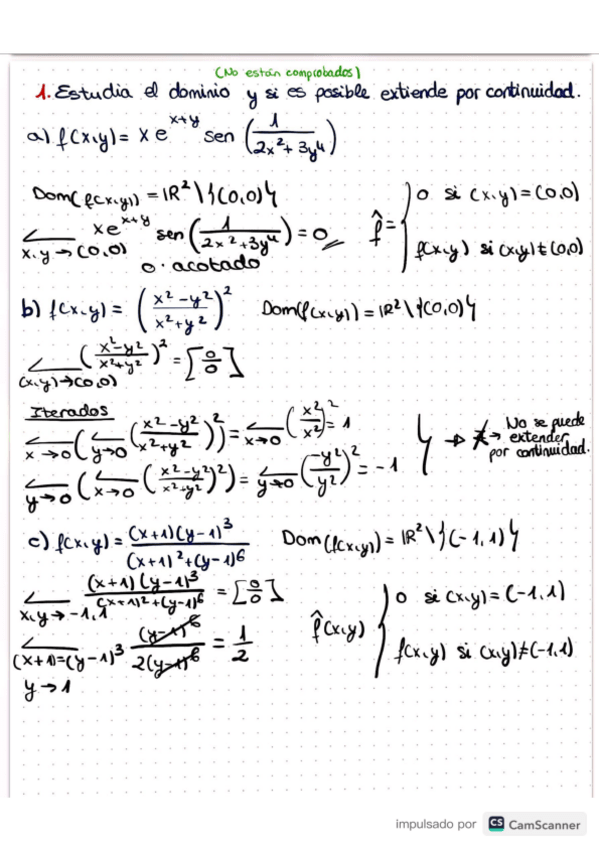 (No están comprobados)
1. Estudia el dominio y si es posible extiende por continuidad.
a) f(x,y) = x e^{x+y} sen (1/(2x²+3y⁴))
Dom(f(x,y)) = ℝ² \ {(0,0)}
x,y → (0,0) x e^{x+y} sen (1/(2x²+3y⁴)) = 0
0 · acotado
f̂ = { 0 si (x,y) = (0,0)
f(x,y) si (x,y) ≠ (0,0)
b) f(x,y) = ((x²-y²)/(x²+y²))² Dom(f(x,y)) = ℝ² \ {(0,0)}
(x,y)→(0,0) ((x²-y²)/(x²+y²))² = [0/0]
Iterados
x→0 (y→0 ((x²-y²)/(x²+y²))²) = x→0 (x²/x²)² = 1
y→0 (x→0 ((x²-y²)/(x²+y²))²) = y→0 (-y²/y²)² = -1
} → ∄ → No se puede
extender
por continuidad.
c) f(x,y) = (x+1)(y-1)³/((x+1)²+(y-1)⁶) Dom(f(x,y)) = ℝ² \ {(-1,1)}
x,y → -1,1 (x+1)(y-1)³/((x+1)²+(y-1)⁶) = [0/0]
(x+1)=(y-1)³ (y-1)⁶/(2(y-1)⁶) = 1/2
y → 1
f̂(x,y) { 0 si (x,y) = (-1,1)
f(x,y) si (x,y) ≠ (-1,1)
impulsado por CS CamScanner